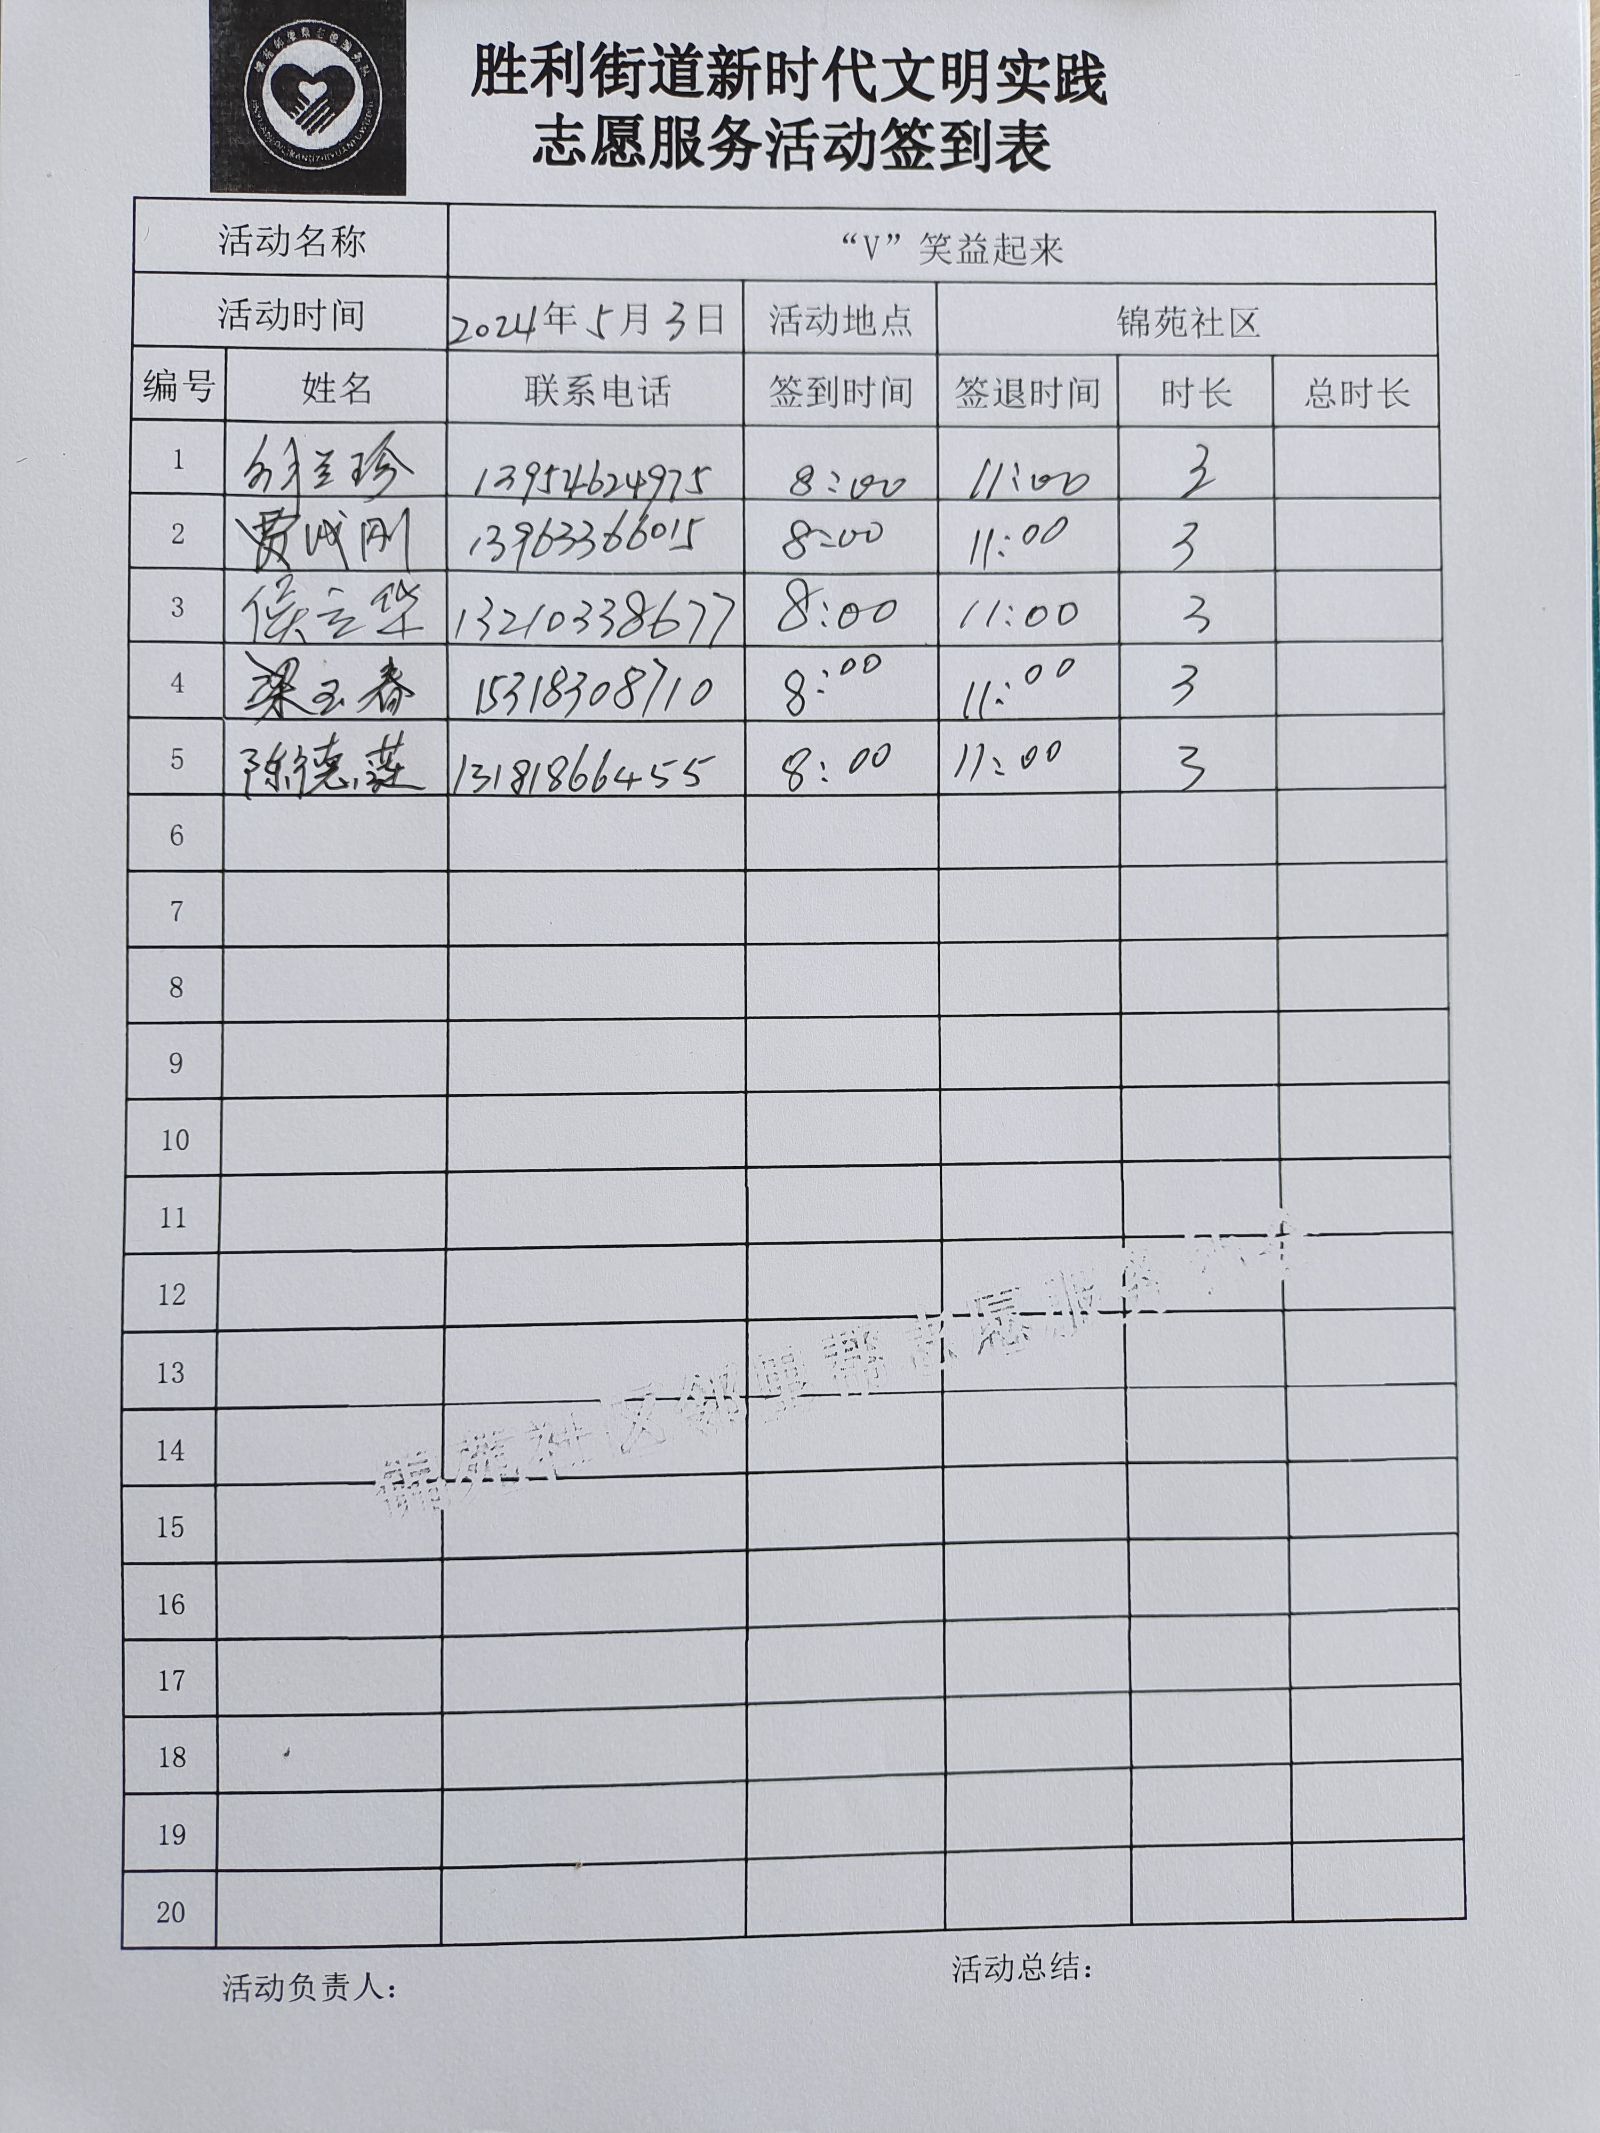 胜利街道新时代文明实践
志愿服务活动签到表
活动名称 “V”笑益起来
活动时间 2024年5月3日 活动地点 锦苑社区
编号 姓名 联系电话 签到时间 签退时间 时长 总时长
1 兰珍 13954624975 8:00 11:00 3
2 贾成刚 13963366015 8:00 11:00 3
3 侯立华 13210338677 8:00 11:00 3
4 梁玉春 15318308710 8:00 11:00 3
5 陈德莲 13181866455 8:00 11:00 3
6
7
8
9
10
11
12
13
14
15
16
17
18
19
20
锦苑社区邻里帮志愿服务协会
活动负责人：
活动总结：